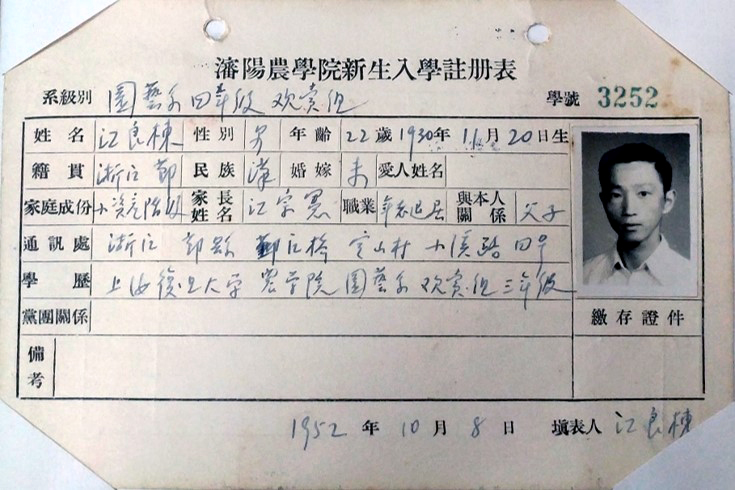 瀋陽農學院新生入學註册表
系級別 園藝系四年级 欢赏组 學號 3252
姓名 江良棟 性別 男 年齡 22歲 1930年 11月20日生
籍貫 浙江 鄞 民族 漢 婚嫁 未 愛人姓名
家庭成份 小資产階级 家長姓名 江宗 職業 年老退居 與本人關係 父子
通訊處 浙江 鄞縣 鄞江桥 村 小溪路 四号
學歷 上海復旦大学 农学院 園藝系 欢赏组三年级
黨團關係 繳存證件
備考
1952年10月8日 填表人 江良棟